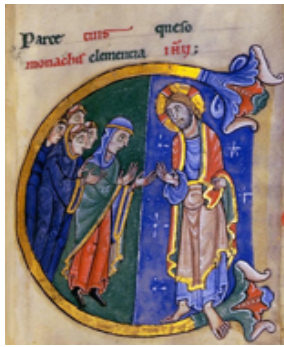 Parce tuis queso
monachis clemencia ihu;